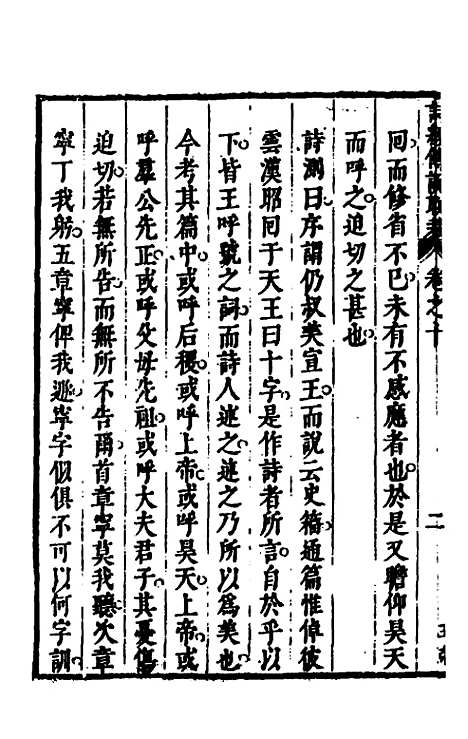 回而修省不已未有不感應者也於是又瞻仰昊天
而呼之迫切之甚也
詩測曰序謂仍叔美宣王而說云史籀通篇惟倬彼
雲漢昭回于天王曰十字是作詩者所言自於乎以
下皆王呼號之詞而詩人述之述之乃所以為美也
今考其篇中或呼后稷或呼上帝或呼昊天上帝或
呼羣公先正或呼父母先祖或呼大夫君子其憂傷
迫切若無所告而無所不告爾首章寧莫我聽次章
寧丁我躬五章寧俾我遯寧字似俱不可以何字訓